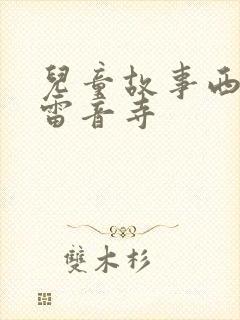 兒童故事西
雷音寺
雙木杉